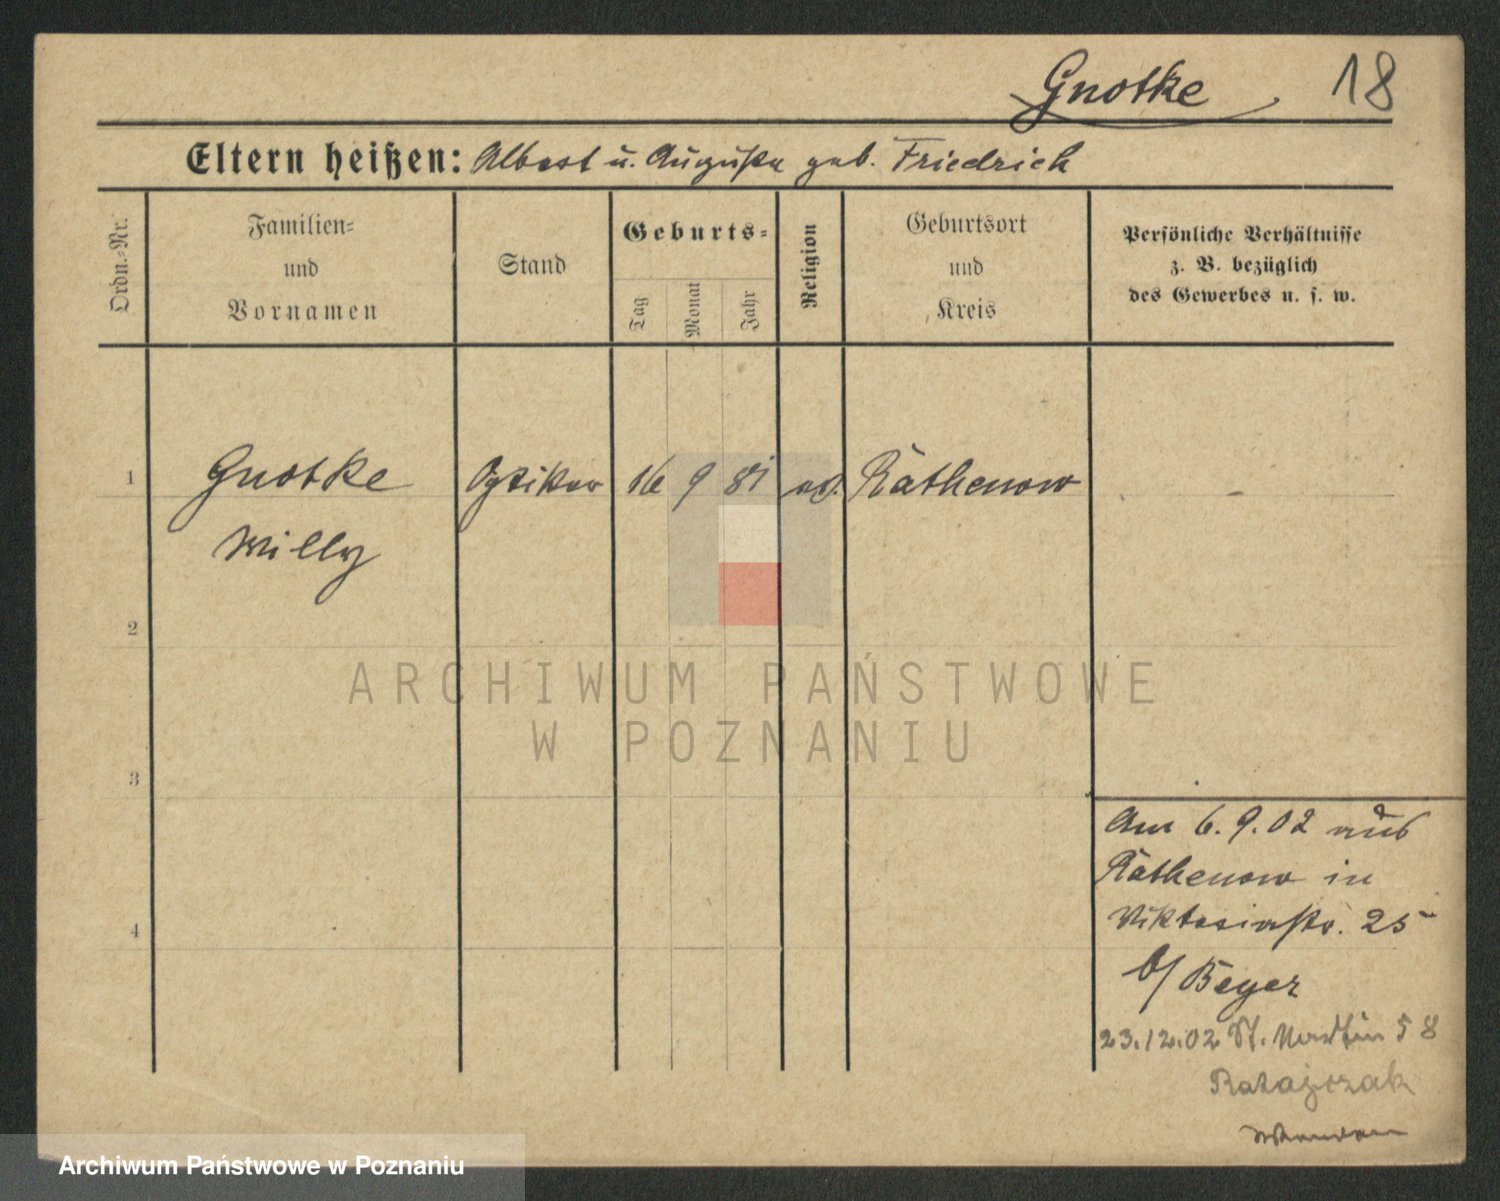 Gnotke 18
Eltern heißen: Albert u. Auguste geb. Friedrich
Ordn.-Nr.
Familien-
und
Vornamen
Stand
Geburts-
Tag
Monat
Jahr
Religion
Geburtsort
und
Kreis
Persönliche Verhältnisse
z. B. bezüglich
des Gewerbes u. s. w.
1 Gnotke Optiker 16 9 81 ev. Rathenow
Willy
2
3
4
Am 6.9.02 aus
Rathenow in
Viktoriastr. 25
b/ Beyer
23.12.02 St. Martin 58
Ratajczak
ARCHIWUM PAŃSTWOWE
W POZNANIU
Archiwum Państwowe w Poznaniu